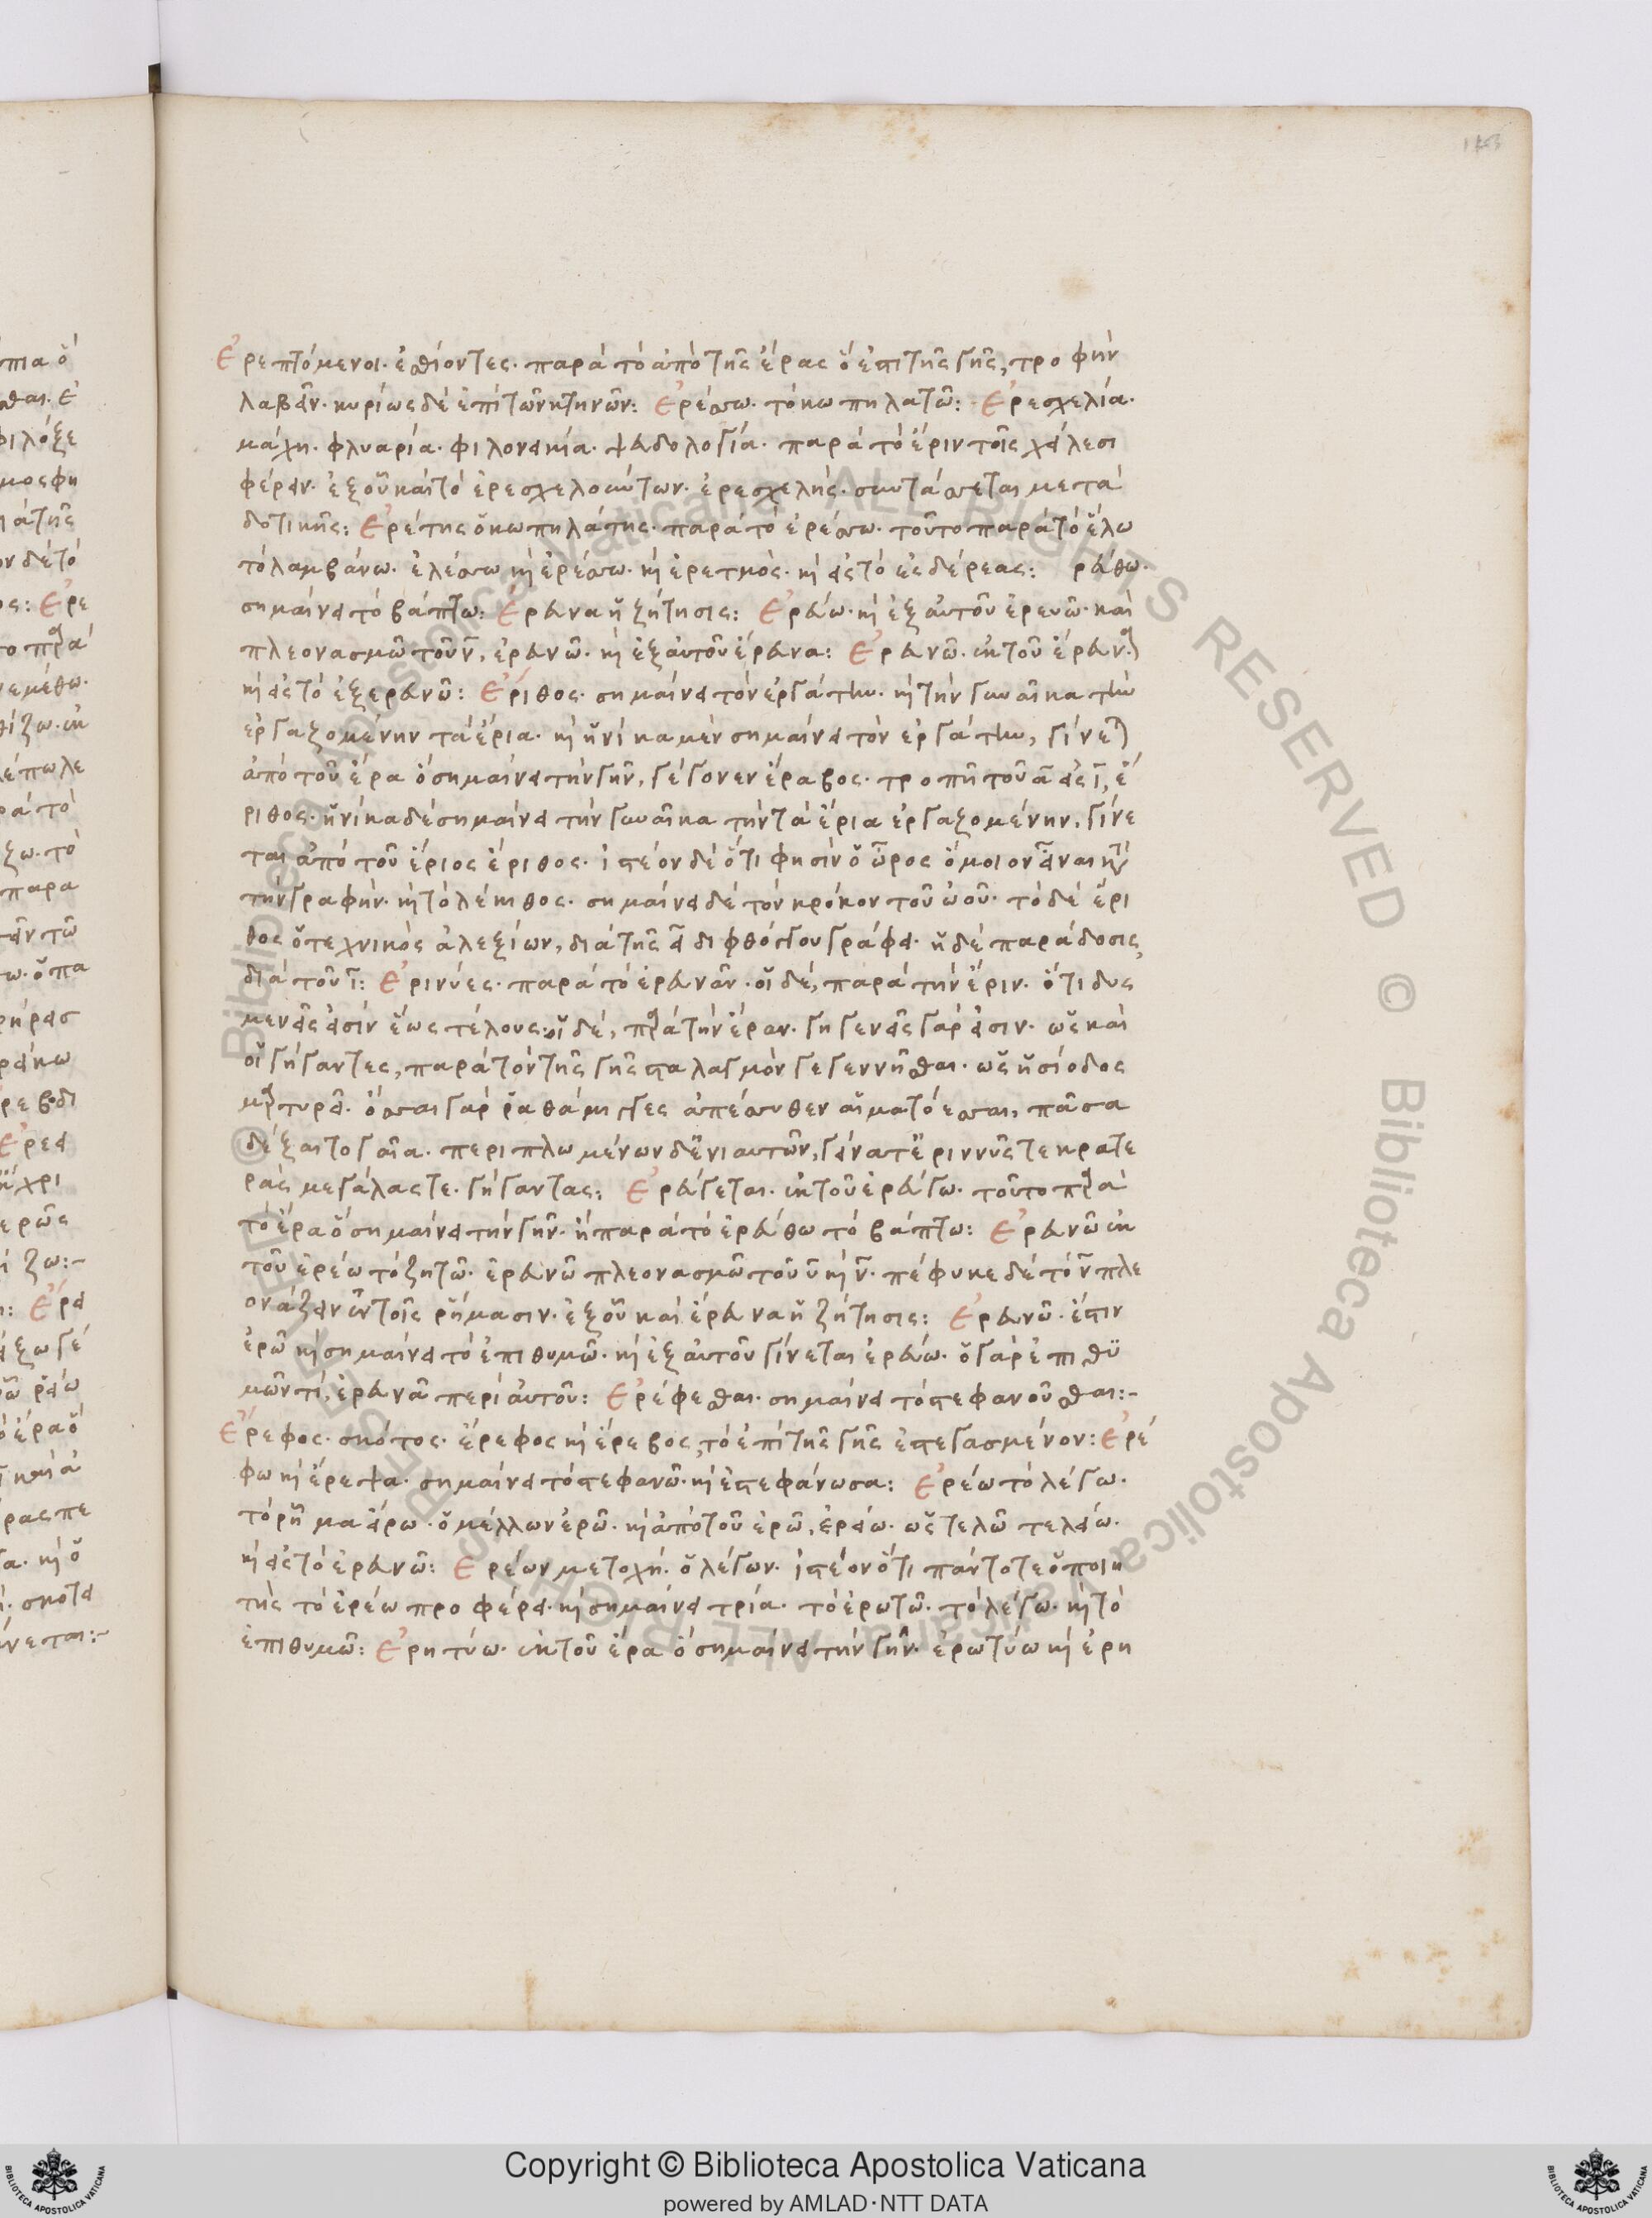 Ἐρεπτόμενοι· ἐσθίοντες· παρὰ τὸ ἀπὸ τῆς ἔρας ὅ ἐστι τῆς γῆς, τροφὴν
λαβεῖν· κυρίως δὲ ἐπὶ τῶν κτηνῶν: Ἐρέσσω· τὸ κωπηλατῶ: Ἐρεσχελία·
μάχη· φλυαρία· φιλονεικία· ψευδολογία· παρὰ τὸ ἔριν τοῖς χείλεσι
φέρειν· ἐξ οὗ καὶ τὸ ἐρεσχελούντων· ἐρεσχελής· συντάσσεται μετὰ
δοτικῆς: Ἐρέτης ὁ κωπηλάτης· παρὰ τὸ ἐρέσσω· τοῦτο παρὰ τὸ ἕλω
τὸ λαμβάνω· ἐλέσσω κὶ ἐρέσσω· κὶ ἐρετμὸς· κὶ εἰς τὸ εἰσδέρεας: ρεύθω·
σημαίνει τὸ βάπτω: Ἔρευνα ἡ ζήτησις: Ἐρεύω· κὶ ἐξ αὐτοῦ ἐρευῶ· καὶ
πλεονασμῶ τοῦ ν, ἐρευνῶ· κὶ ἐξ αὐτοῦ ἔρευνα: Ἐρευνῶ· ἐκ τοῦ ἔρευνα)
κὶ εἰς τὸ ἐξερευνῶ: Ἔριθος· σημαίνει τὸν ἐργάτην· κὶ τὴν γυναῖκα τὴν
ἐργαζομένην τὰ ἔρια· κὶ ἡνίκα μὲν σημαίνει τὸν ἐργάτην, γίνε)
ἀπὸ τοῦ ἔρα ὁ σημαίνει τὴν γῆν, γέγονεν ἔραβος· τροπῆ τοῦ α εἰς ι, ἔ
ριθος· ἡνίκα δὲ σημαίνει τὴν γυναῖκα τὴν τὰ ἔρια ἐργαζομένην, γίνε
ται ἀπὸ τοῦ ἔριος ἔριθος· ἰστέον δὲ ὅτι φησὶν ὁ ὦρος ὅμοιον εἶναι κτ
τὴν γραφὴν· κὶ τὸ λέκιθος· σημαίνει δὲ τὸν κρόκον τοῦ ὠοῦ· τὸ δὲ ἔρι
θος ὁ τεχνικὸς ἀλεξίων, διὰ τῆς ει διφθόγγου γράφει· ἡ δὲ παράδοσις,
διὰ τοῦ ι: Ἐρινύες· παρὰ τὸ ἐρευνᾶν· οἱ δὲ, παρὰ τὴν ἔριν· ὅτι δυς
μενεῖς εἰσὶν ἕως τέλους· οἱ δὲ, πρὰ τὴν ἔραν· γηγενεῖς γάρ εἰσιν· ὡς καὶ
οἱ γήγαντες, παρὰ τὸν τῆς γῆς σταλαγμὸν γεγεννῆσθαι· ὡς ἡσίοδος
μρτυρεῖ· ὅσσαι γὰρ ῥαθάμιγγες ἀπέσσυθεν αἱματόεσσαι, πᾶσα
δέξαιτο γαῖα· περιπλωμένων δ' ἐνιαυτῶν, γείνατ' ἐριννῦς τε κρατε
ρὰς μεγάλας τε· γήγαντας: Ἐρεύγεται· ἐκ τοῦ ἐρεύγω· τοῦτο πρὰ
τὸ ἔρα ὅ σημαίνει τὴν γῆν· ἢ παρὰ τὸ ἐρεύθω τὸ βάπτω: Ἐρευνῶ ἐκ
τοῦ ἐρέω τὸ ζητῶ· ἐρευνῶ πλεονασμῶ τοῦ υ κὶ ν· πέφυκε δὲ τὸ ν πλε
ονάζειν ἐν τοῖς ῥήμασιν· ἐξ οὗ καὶ ἔρευνα ἡ ζήτησις: Ἐρευνῶ· ἔστιν
ἐρῶ κὶ σημαίνει τὸ ἐπιθυμῶ· κὶ ἐξ αὐτοῦ γίνεται ἐρεύω· ὁ γὰρ ἐπιθυ
μῶν τί, ἐρευνᾶ περὶ αὐτοῦ: Ἐρέφεσθαι· σημαίνει τὸ στεφανοῦσθαι:-
Ἔρεφος· σκότος· ἔρεφος κὶ ἔρεβος, τὸ ἐπὶ τῆς γῆς ἐστεγασμένον: Ἐρέ
φω κὶ ἔρεψα· σημαίνει τὸ στεφανῶ· κὶ ἐστεφάνωσα: Ἐρέω τὸ λέγω·
τὸ ρῆμα εἴρω· ὁ μέλλων ἐρῶ· κὶ ἀπὸ τοῦ ἐρῶ, ἐρείω· ὡς τελῶ τελείω·
κὶ εἰς τὸ ἐρευνῶ: Ἐρέων μετοχή· ὁ λέγων· ἰστέον ὅτι πάντοτε ὁ ποιη
τὴς τὸ ἐρέω προφέρει· κὶ σημαίνει τρία· τὸ ἐρωτῶ· τὸ λέγω· κὶ τὸ
ἐπιθυμῶ: Ἐρητύω· ἐκ τοῦ ἔρα ὁ σημαίνει τὴν γῆν· ἐρωτύω κὶ ἐρη
Copyright © Biblioteca Apostolica Vaticana
powered by AMLAD·NTT DATA